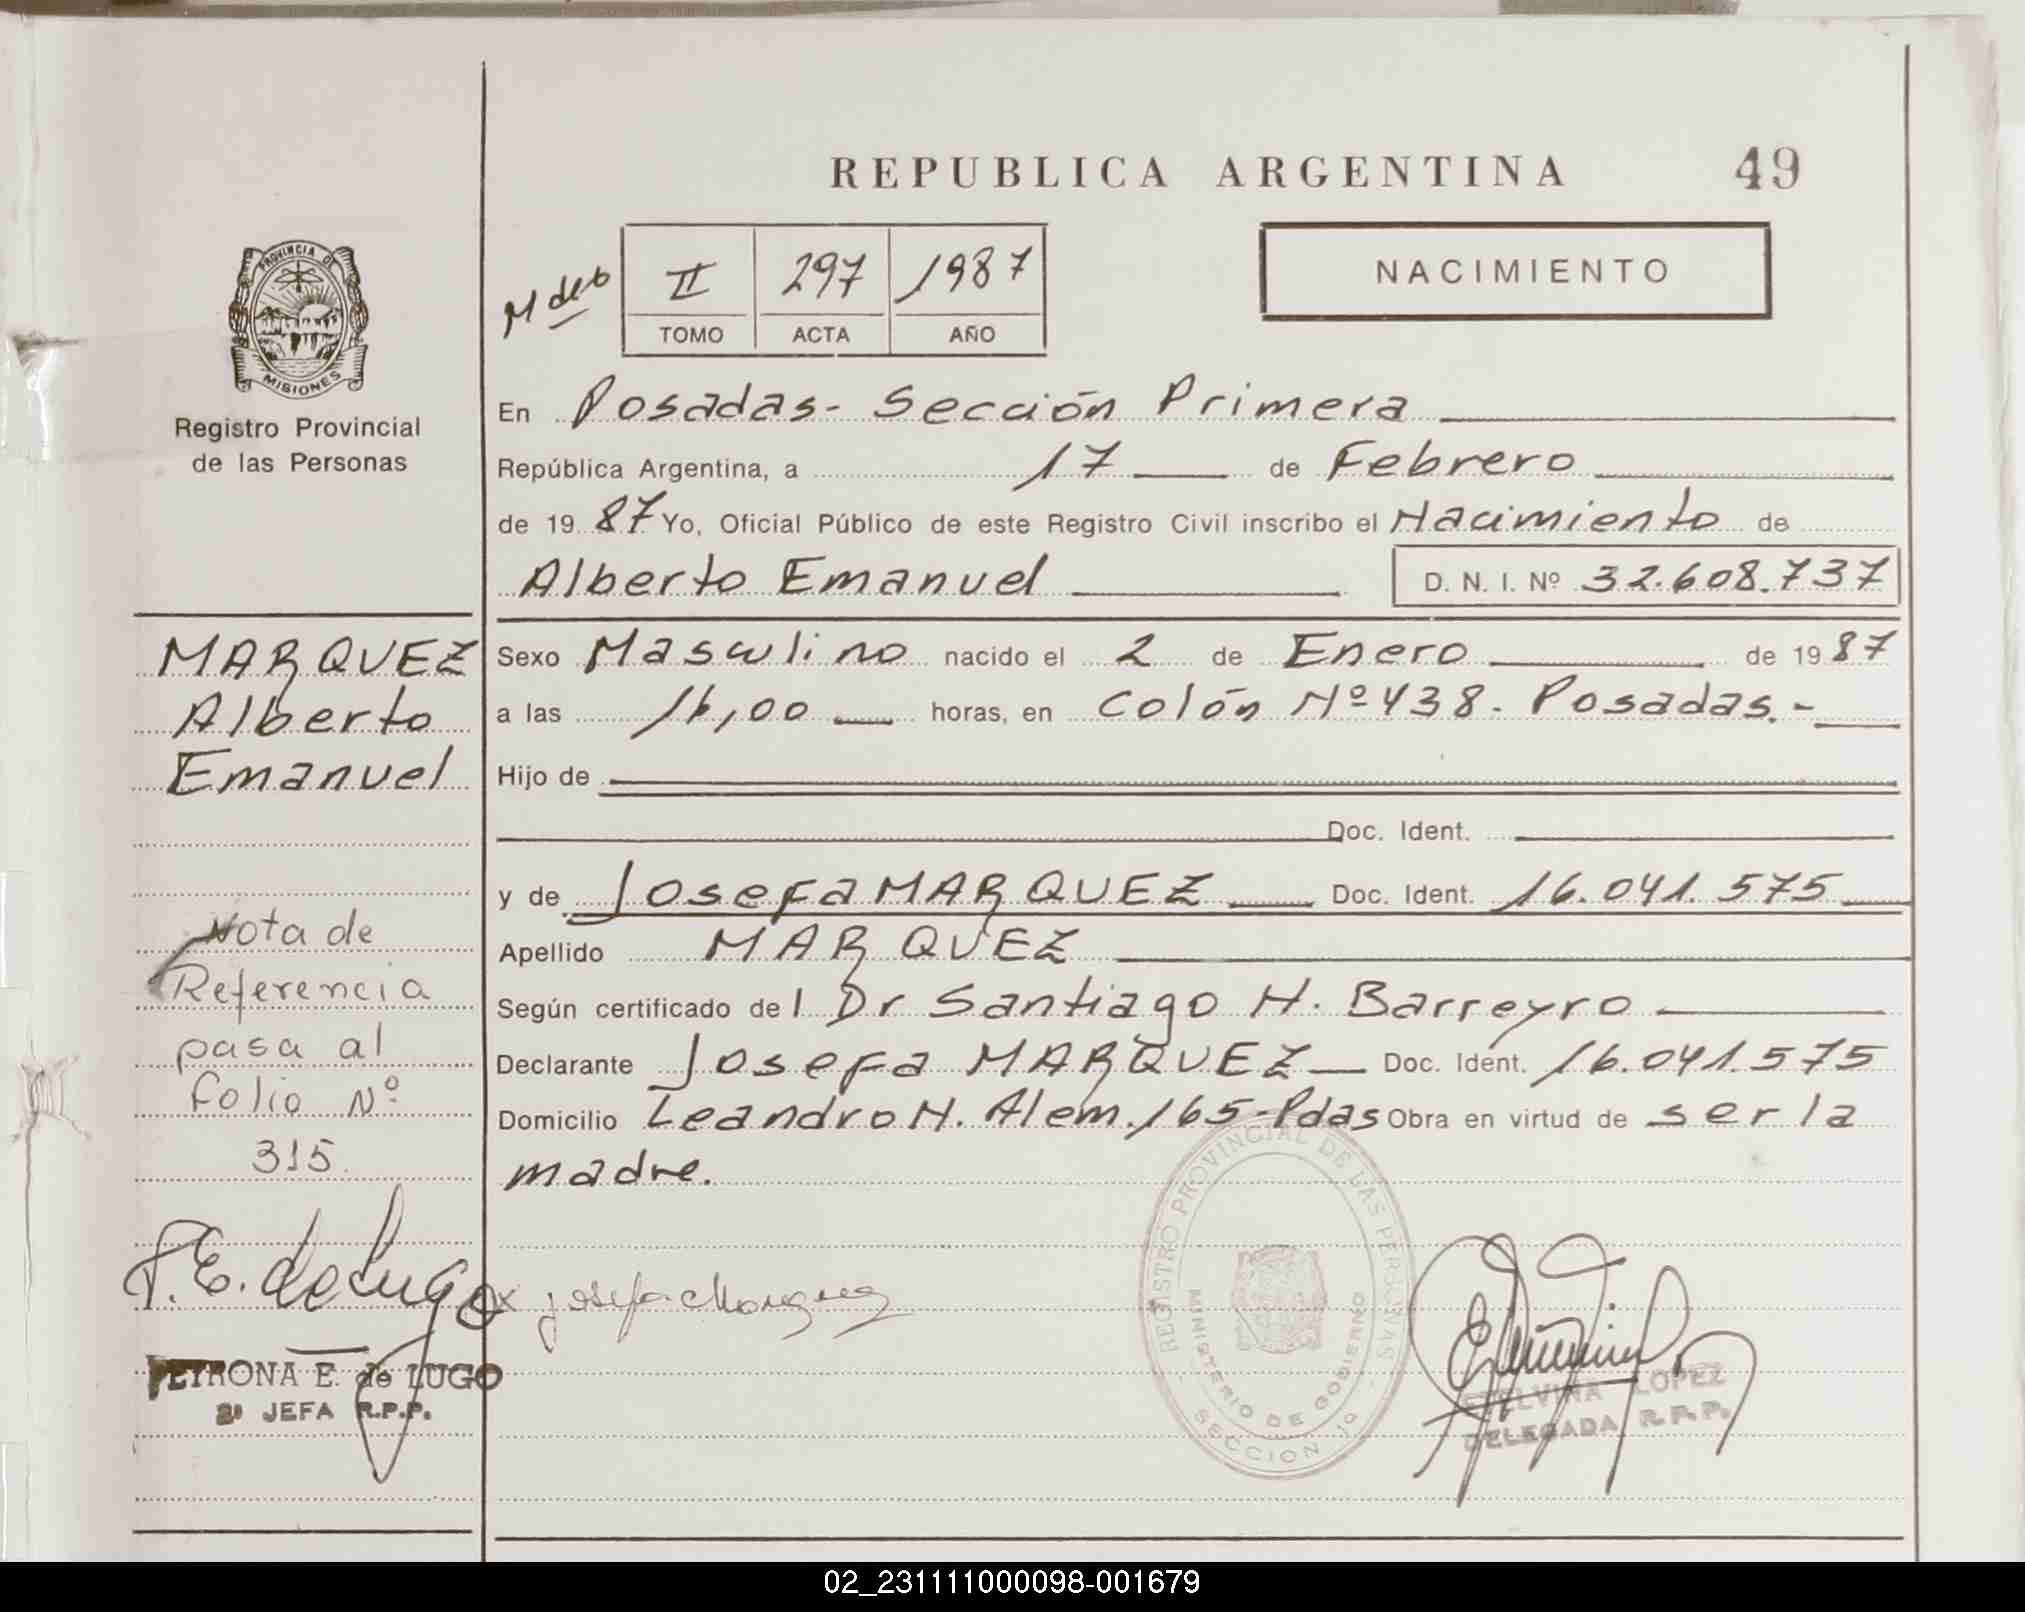 REPUBLICA ARGENTINA 49
PROVINCIA DE
MISIONES
Registro Provincial
de las Personas
II 297 1987
TOMO ACTA AÑO
NACIMIENTO
En Posadas - Sección Primera
República Argentina, a 17 de Febrero
de 1987 Yo, Oficial Público de este Registro Civil inscribo el Nacimiento de
Alberto Emanuel D. N. I. Nº 32.608.737
MARQUEZ
Alberto
Emanuel
Sexo Masculino nacido el 2 de Enero de 1987
a las 16,00 horas, en Colón Nº 438. Posadas.-
Hijo de
Doc. Ident.
y de Josefa MARQUEZ Doc. Ident. 16.041.575
Apellido MARQUEZ
Según certificado del Dr Santiago H. Barreyro
Declarante Josefa MARQUEZ Doc. Ident. 16.041.575
Domicilio Leandro N. Alem. 165-Pdas Obra en virtud de ser la
madre.
Nota de
Referencia
pasa al
folio Nº
315.
P.E. de Lugo
PETRONA E. de LUGO
2ª JEFA R.P.P.
x Josefa Marquez
REGISTRO PROVINCIAL DE LAS PERSONAS
MINISTERIO DE GOBIERNO
SECCION 1ª
ETELVINA LOPEZ
DELEGADA R.P.P.
02_231111000098-001679